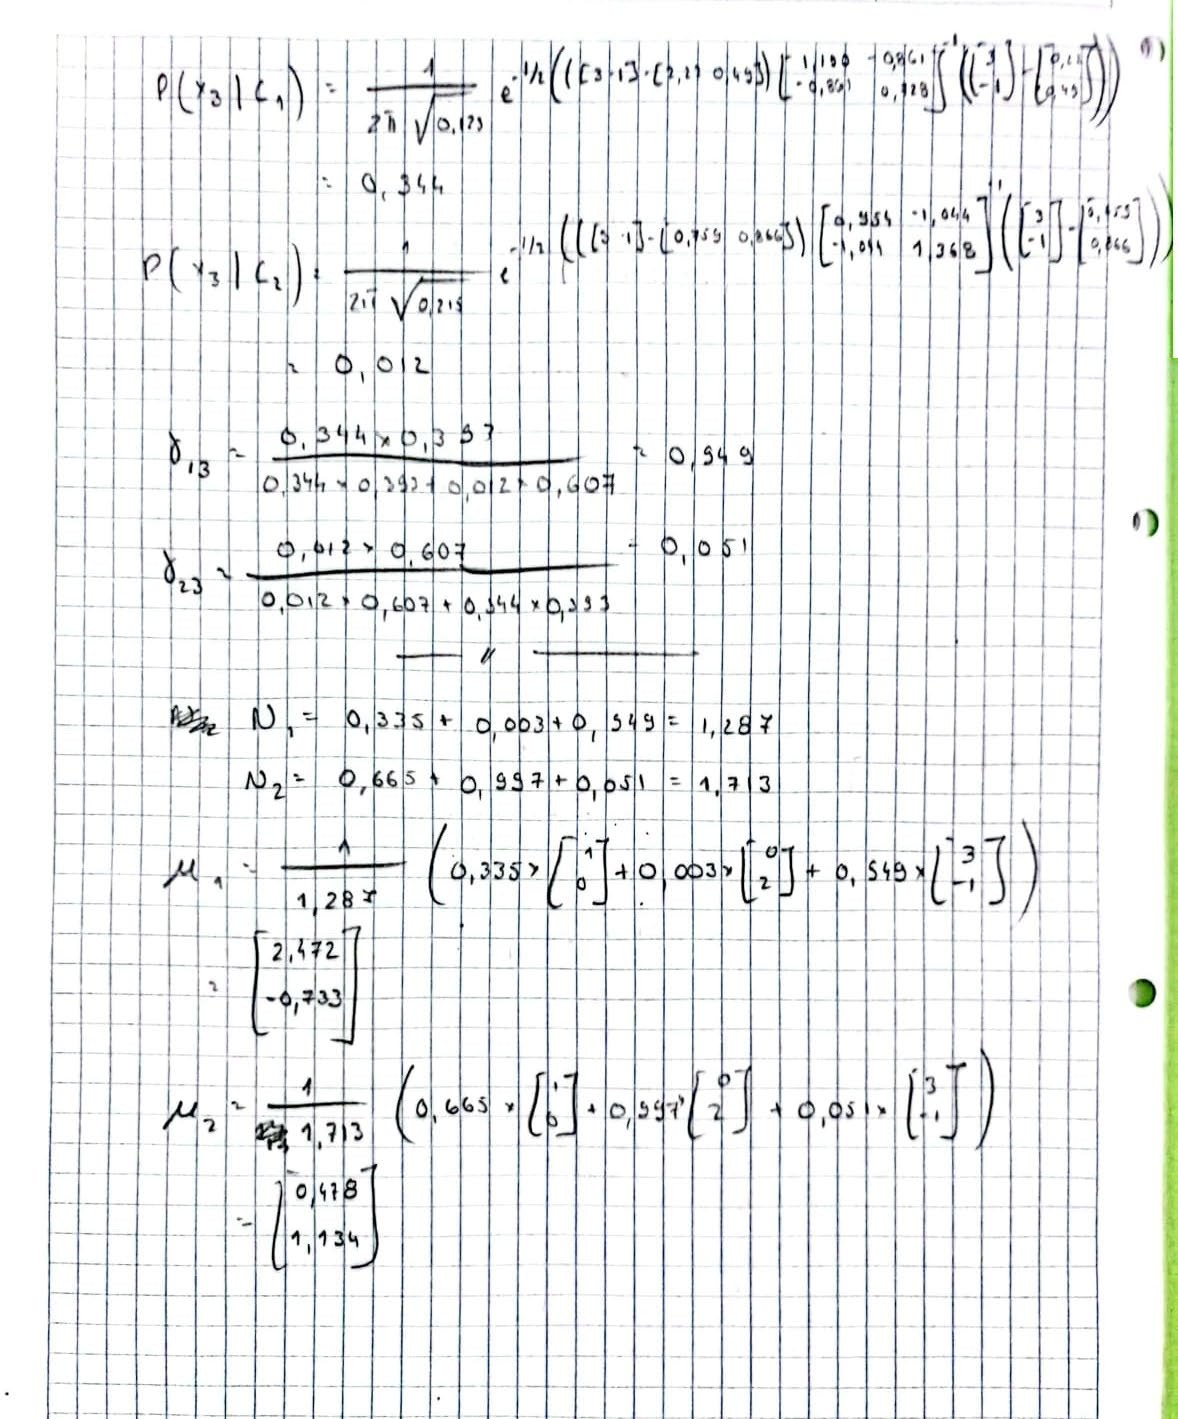 P(x₃|C₁) = 1 / (2π √0,129) e^-1/2 (([3 -1] - [2,21 0,49]) [1,190 -0,861; -0,861 0,728]^-1 ([3; -1] - [0,49]))
= 0,344
P(x₃|C₂) = 1 / (2π √0,215) e^-1/2 (([3 -1] - [0,759 0,866]) [0,954 -1,044; -1,044 1,368]^-1 ([3; -1] - [0,866]))
= 0,012
γ₁₃ = 0,344 × 0,393 / (0,344 × 0,393 + 0,012 × 0,607) = 0,949
γ₂₃ = 0,012 × 0,607 / (0,012 × 0,607 + 0,344 × 0,393) = 0,051
— // —
N₁ = 0,335 + 0,003 + 0,949 = 1,287
N₂ = 0,665 + 0,997 + 0,051 = 1,713
μ₁ = 1 / 1,287 (0,335 × [1; 0] + 0,003 × [0; 2] + 0,949 × [3; -1])
= [2,472; -0,733]
μ₂ = 1 / 1,713 (0,665 × [1; 0] + 0,997 × [0; 2] + 0,051 × [3; -1])
= [0,478; 1,134]